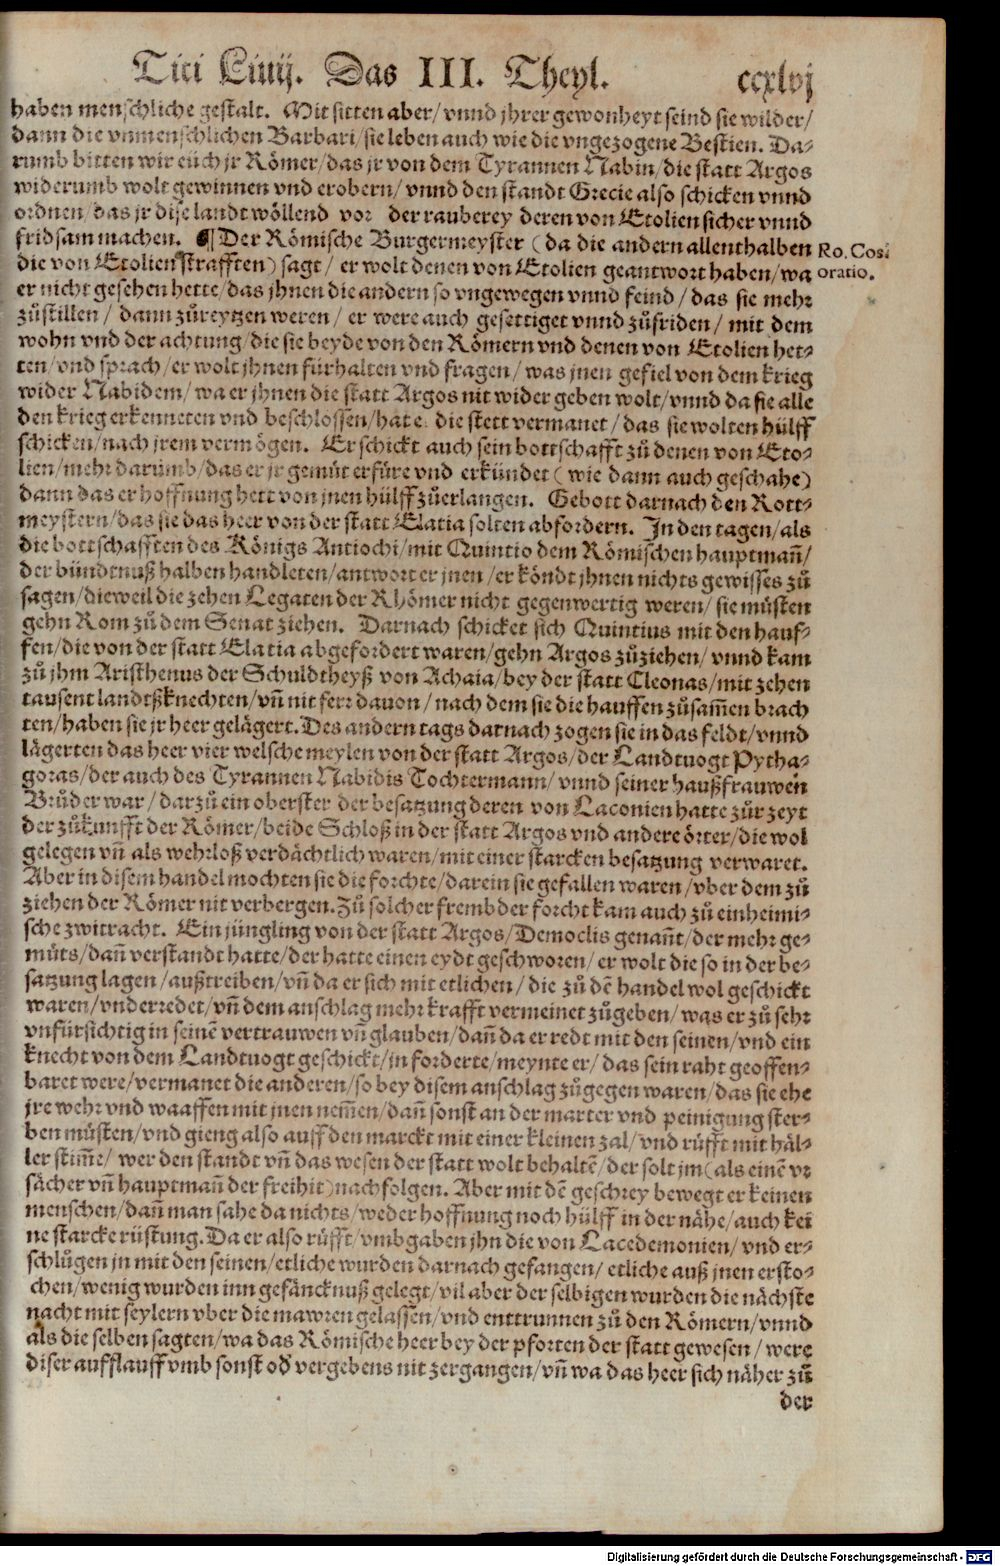 Titi Liuij. Das III. Theyl. ccxlvj
haben menschliche gestalt. Mit sitten aber/ vnnd jhrer gewonheyt seind sie wilder/
dann die vnmenschlichen Barbari/ sie leben auch wie die vngezogene Bestien. Da-
rumb bitten wir eüch jr Römer/ das jr von dem Tyrannen Nabin/ die statt Argos
widerumb wolt gewinnen vnd erobern/ vnnd den standt Grecie also schicken vnnd
ordnen/ das jr dise landt wöllend vor der rauberey deren von Etolien sicher vnnd
fridsam machen. ¶ Der Römische Burgermeyster (da die andern allenthalben
Ro. Cos.
oratio.
die von Etolien strafften) sagt/ er wolt denen von Etolien geantwort haben/ wa
er nicht gesehen hette/ das jhnen die andern so vngewegen vnnd feind/ das sie mehr
zůstillen/ dann zůreytzen weren/ er were auch gesettiget vnnd zůfriden/ mit dem
wohn vnd der achtung/ die sie beyde von den Römern vnd denen von Etolien het-
ten/ vnd sprach/ er wolt jhnen fürhalten vnd fragen/ was jnen gefiel von dem krieg
wider Nabidem/ wa er jhnen die statt Argos nit wider geben wolt/ vnnd da sie alle
den krieg erkenneten vnd beschlossen/ hat e. die stett vermanet/ das sie wolten hülff
schicken/ nach jrem vermögen. Er schickt auch sein bottschafft zů denen von Eto-
lien/ mehr darumb/ das er jr gemüt erfüre vnd erkündet (wie dann auch geschahe)
dann das er hoffnung hett von jnen hülff zůerlangen. Gebott darnach den Rott-
meystern/ das sie das heer von der statt Elatia solten abfordern. In den tagen/ als
die bottschafften des Königs Antiochi/ mit Quintio dem Römischen hauptmañ/
der bündtnuß halben handleten/ antwort er jnen/ er köndt jhnen nichts gewisses zů
sagen/ dieweil die zehen Legaten der Rhömer nicht gegenwertig weren/ sie müsten
gehn Rom zů dem Senat ziehen. Darnach schicket sich Quintius mit den hauf-
fen/ die von der statt Elatia abgefordert waren/ gehn Argos zůziehen/ vnnd kam
zů jhm Aristhenus der Schuldtheyß von Achaia/ bey der statt Cleonas/ mit zehen
tausent landtßknechten/ vñ nit ferr dauon/ nach dem sie die hauffen zůsam̃en brach
ten/ haben sie jr heer gelägert. Des andern tags darnach zogen sie in das feldt/ vnnd
lägerten das heer vier welsche meylen von der statt Argos/ der Landtuogt Pytha-
goras/ der auch des Tyrannen Nabidis Tochtermann/ vnnd seiner haußfrauwen
Brůder war/ darzů ein oberster der besatzung deren von Laconien hatte zůr zeyt
der zůkunfft der Römer/ beide Schloß in der statt Argos vnd andere örter/ die wol
gelegen vñ als wehrloß verdächtlich waren/ mit einer starcken besatzung verwaret.
Aber in disem handel mochten sie die forchte/ darein sie gefallen waren/ vber dem zů
ziehen der Römer nit verbergen. Zů solcher frembder forcht kam auch zů einheimi-
sche zwitracht. Ein jüngling von der statt Argos/ Democlis genañt/ der mehr ge-
müts/ dañ verstandt hatte/ der hatte einen eydt geschworen/ er wolt die so in der be-
satzung lagen/ außtreiben/ vñ da er sich mit etlichen/ die zů dẽ handel wol geschickt
waren/ vnderredet/ vñ dem anschlag mehr krafft vermeinet zůgeben/ was er zů sehr
vnfürsichtig in seinẽ vertrauwen vñ glauben/ dañ da er redt mit den seinen/ vnd ein
knecht von dem Landtuogt geschickt/ jn forderte/ meynte er/ das sein raht geoffen-
baret were/ vermanet die anderen/ so bey disem anschlag zůgegen waren/ das sie ehe
jre wehr vnd waaffen mit jnen nem̃en/ dañ sonst an der marter vnd peinigung ster-
ben müsten/ vnd gieng also auff den marckt mit einer kleinen zal/ vnd růfft mit häl-
ler stim̃e/ wer den standt vñ das wesen der statt wolt behaltẽ/ der solt jm (als einẽ vr
sächer vñ hauptmañ der freihit) nachfolgen. Aber mit dẽ geschrey bewegt er keinen
menschen/ dañ man sahe da nichts/ weder hoffnung noch hülff in der nähe/ auch kei
ne starcke rüstung. Da er also růfft/ vmbgaben jhn die von Lacedemonien/ vnd er-
schlůgen jn mit den seinen/ etliche wurden darnach gefangen/ etliche auß jnen ersto-
chen/ wenig wurden inn gefäncknuß gelegt/ vil aber der selbigen wurden die nächste
nacht mit seylern vber die mawren gelassen/ vnd enttrunnen zů den Römern/ vnnd
als die selben sagten/ wa das Römische heer bey der pforten der statt gewesen/ were
diser aufflauff vmb sonst oď vergebens nit zergangen/ vñ wa das heer sich näher zů
der
Digitalisierung gefördert durch die Deutsche Forschungsgemeinschaft - DFG